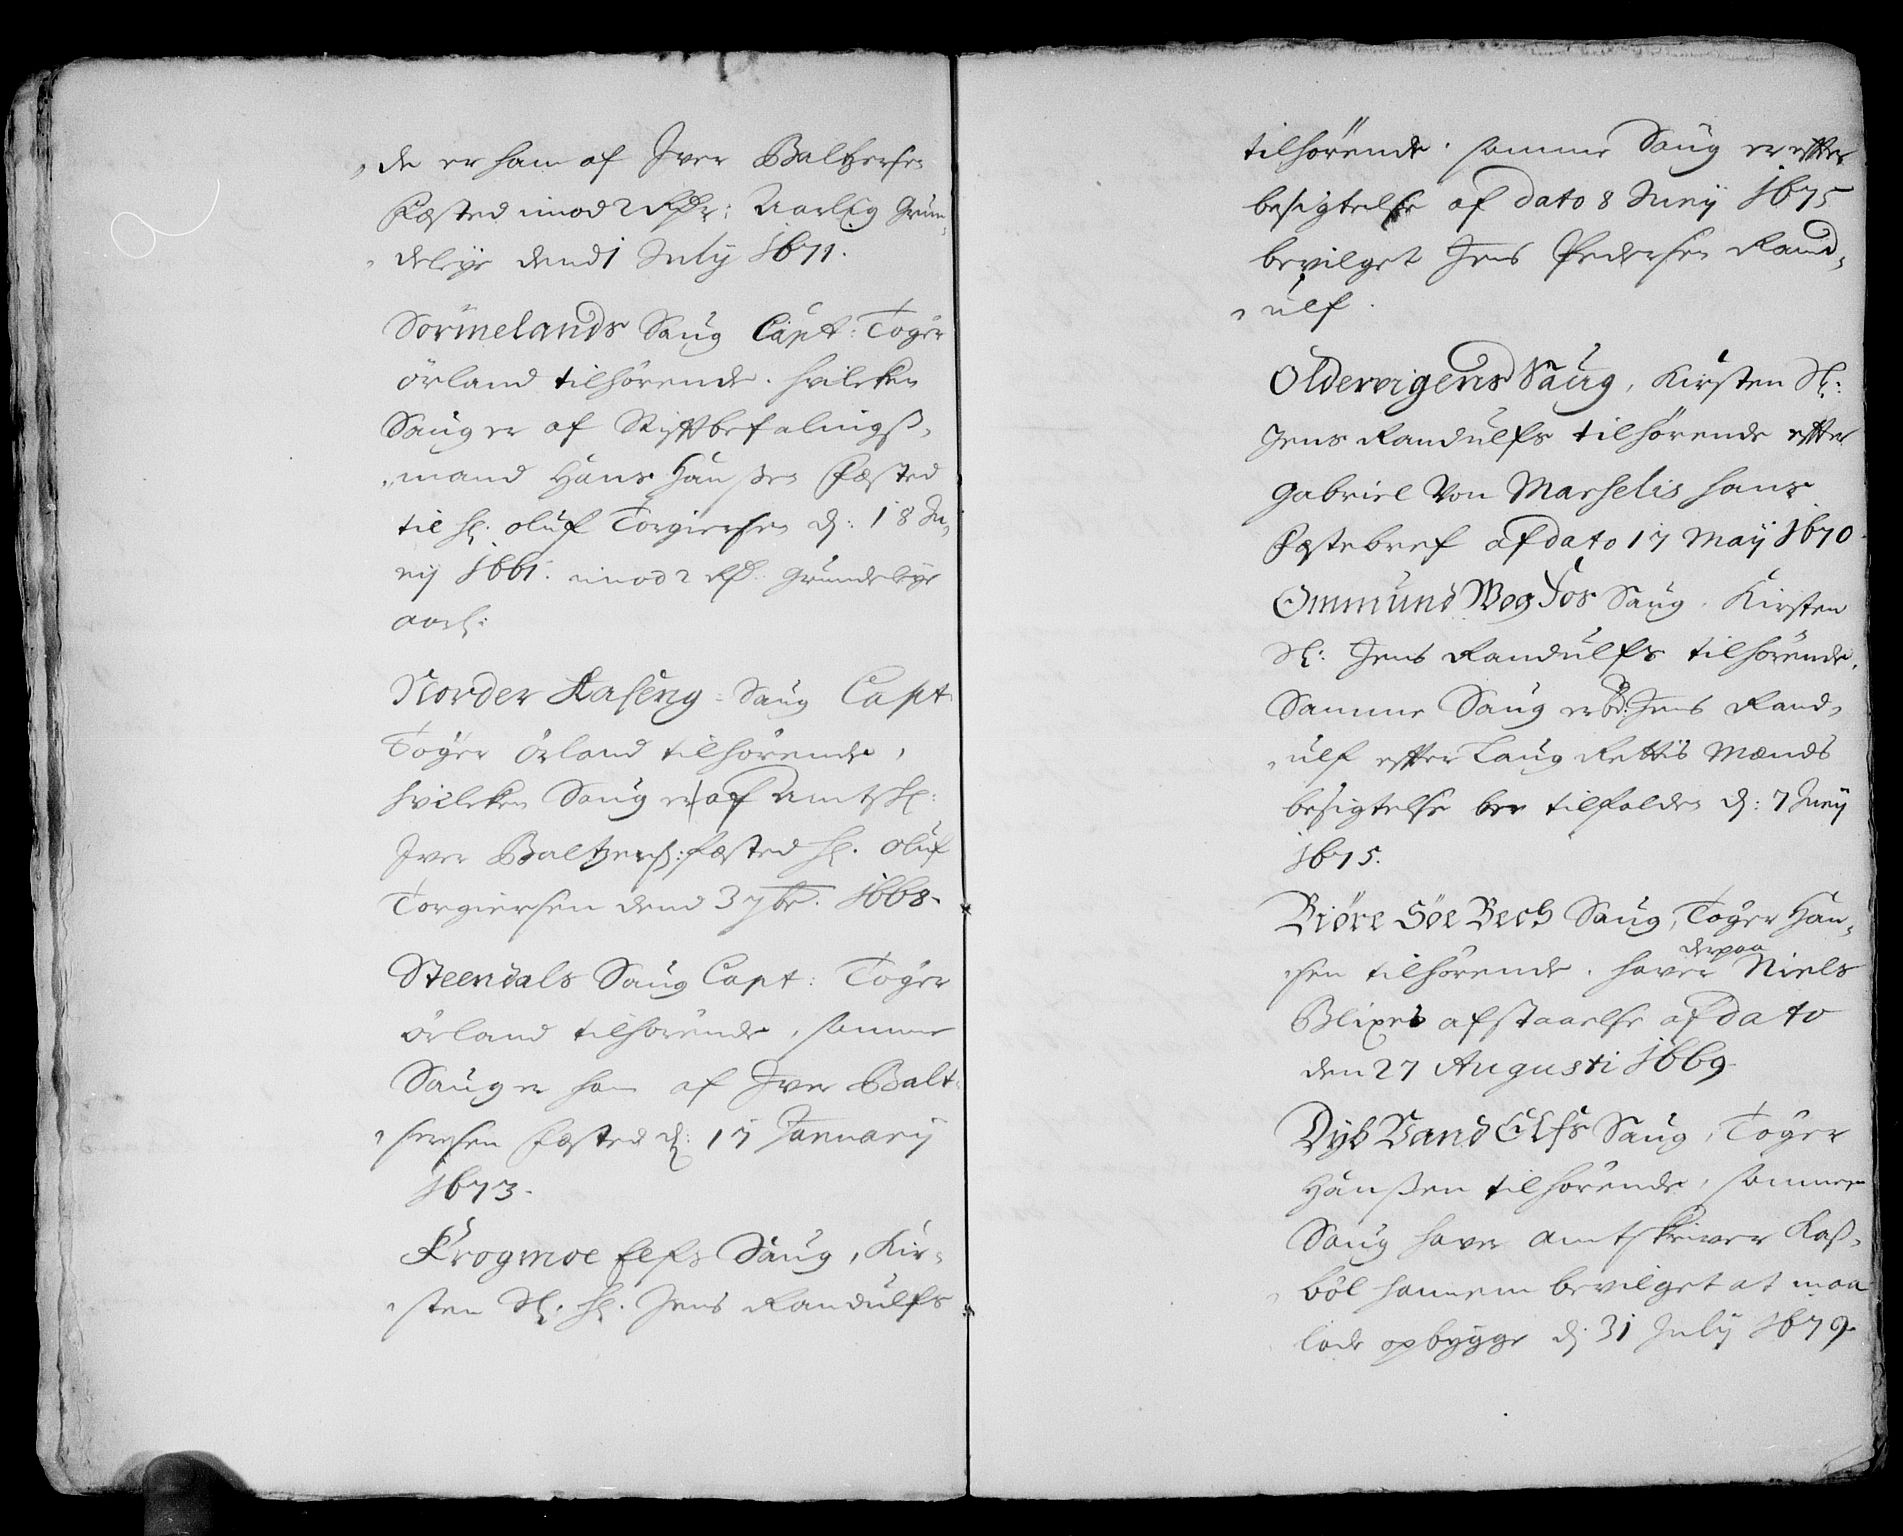 de er ham af Jver Baltzersen
Fæsted imod 2 Rdr: Aarlig Grun-
deleye dend 1 July 1671.
Sörmelands Saug Capt: Toger
örland tilhörende. hvilcken
Saug er af Stifftbefalingß-
mand Hans Hanßen Fæsted
til Hr. Oluf Torgiersen d: 18 Ju-
nij 1661. imod 2 Rd. Grundeleye
aarl:
Norder Aaseng Saug Capt
Toger Örland tilhörende,
hvilcken Saug er af Amtskr:
Jver Baltzers: fæsted Hr. Oluf
Torgiersen dend 3 7br. 1668.
Steendals Saug Capt: Toger
örland tilhörende, samme
Saug er ham af Jver Balt-
sersen Fæsted d: 17 Januarij
1673.
Krogmoe Elfs Saug, Kir-
sten Sl. Hr. Jens Randulfs
tilhörende. samme Saug er effter
besigtelse af dato 8 Junij 1675
bevilget Jens Pedersen Rand-
ulf.
Oldervigens Saug, Kirsten Sl:
Jens Randulfs tilhörende effter
Gabriel Von Marselis hans
Fæstebref af dato 17 Maij 1670.
Ommund Wog Fos Saug. Kirsten
Sl: Jens Randulfs tilhörende.
Samme Saug er Jens Rand-
ulf effter Laug Rettis Mænds
besigtelse tilfalden d: 7 Junij
1675.
Biöre Söe Bech Saug, Toger Han-
sen tilhörende. haver derpaa Niels
Blixes afstaaelse af dato
den 27 Augusti 1669.
Dyb Vand Elfs Saug, Toger
Hanßen tilhörende, samme
Saug haver Amtskriver Kaß-
böl hannem bevilget at maa
lade opbygge d: 31 July 1679.